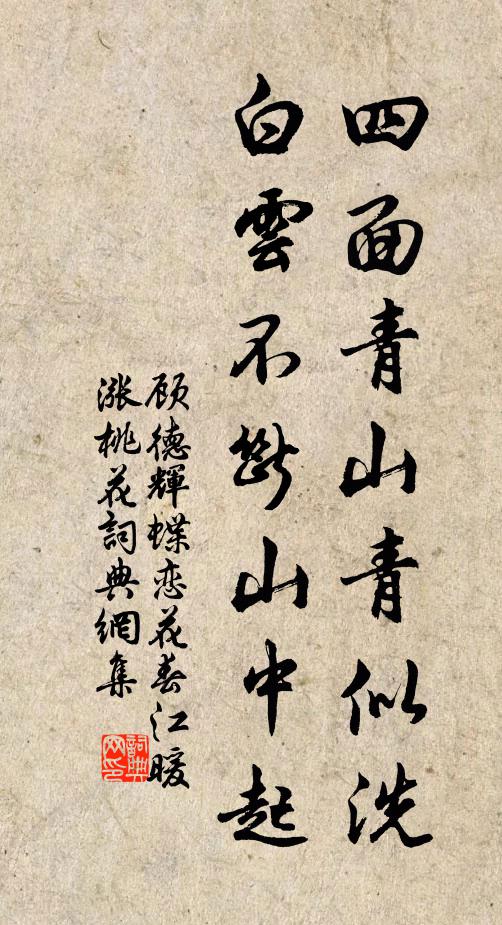 四面青山青似洗
白雲不斷山中起
顾德輝蝶恋花春江暖
涨桃花詞典網集
詞典
网印